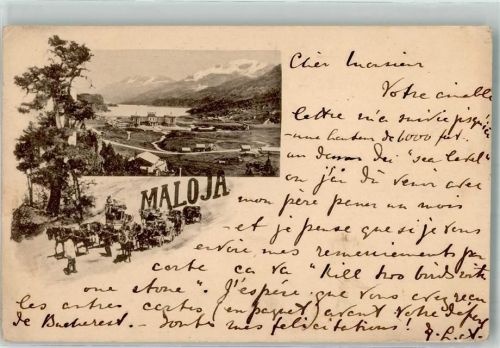 MALOJA
Cher Monsieur
Votre aimable
lettre m'a suivie jusqu'à
une hauteur de 6000 ft.
au dessus du "sea level"
où j'ai dû venir avec
mon père passer un mois
- et je pense que si je vous
envoie mes remerciements par
carte ça va "Kill two birds with
one stone". J'espère que vous avez reçu
les autres cartes (en paquet) avant votre départ
de Bucharest. - toutes mes félicitations!